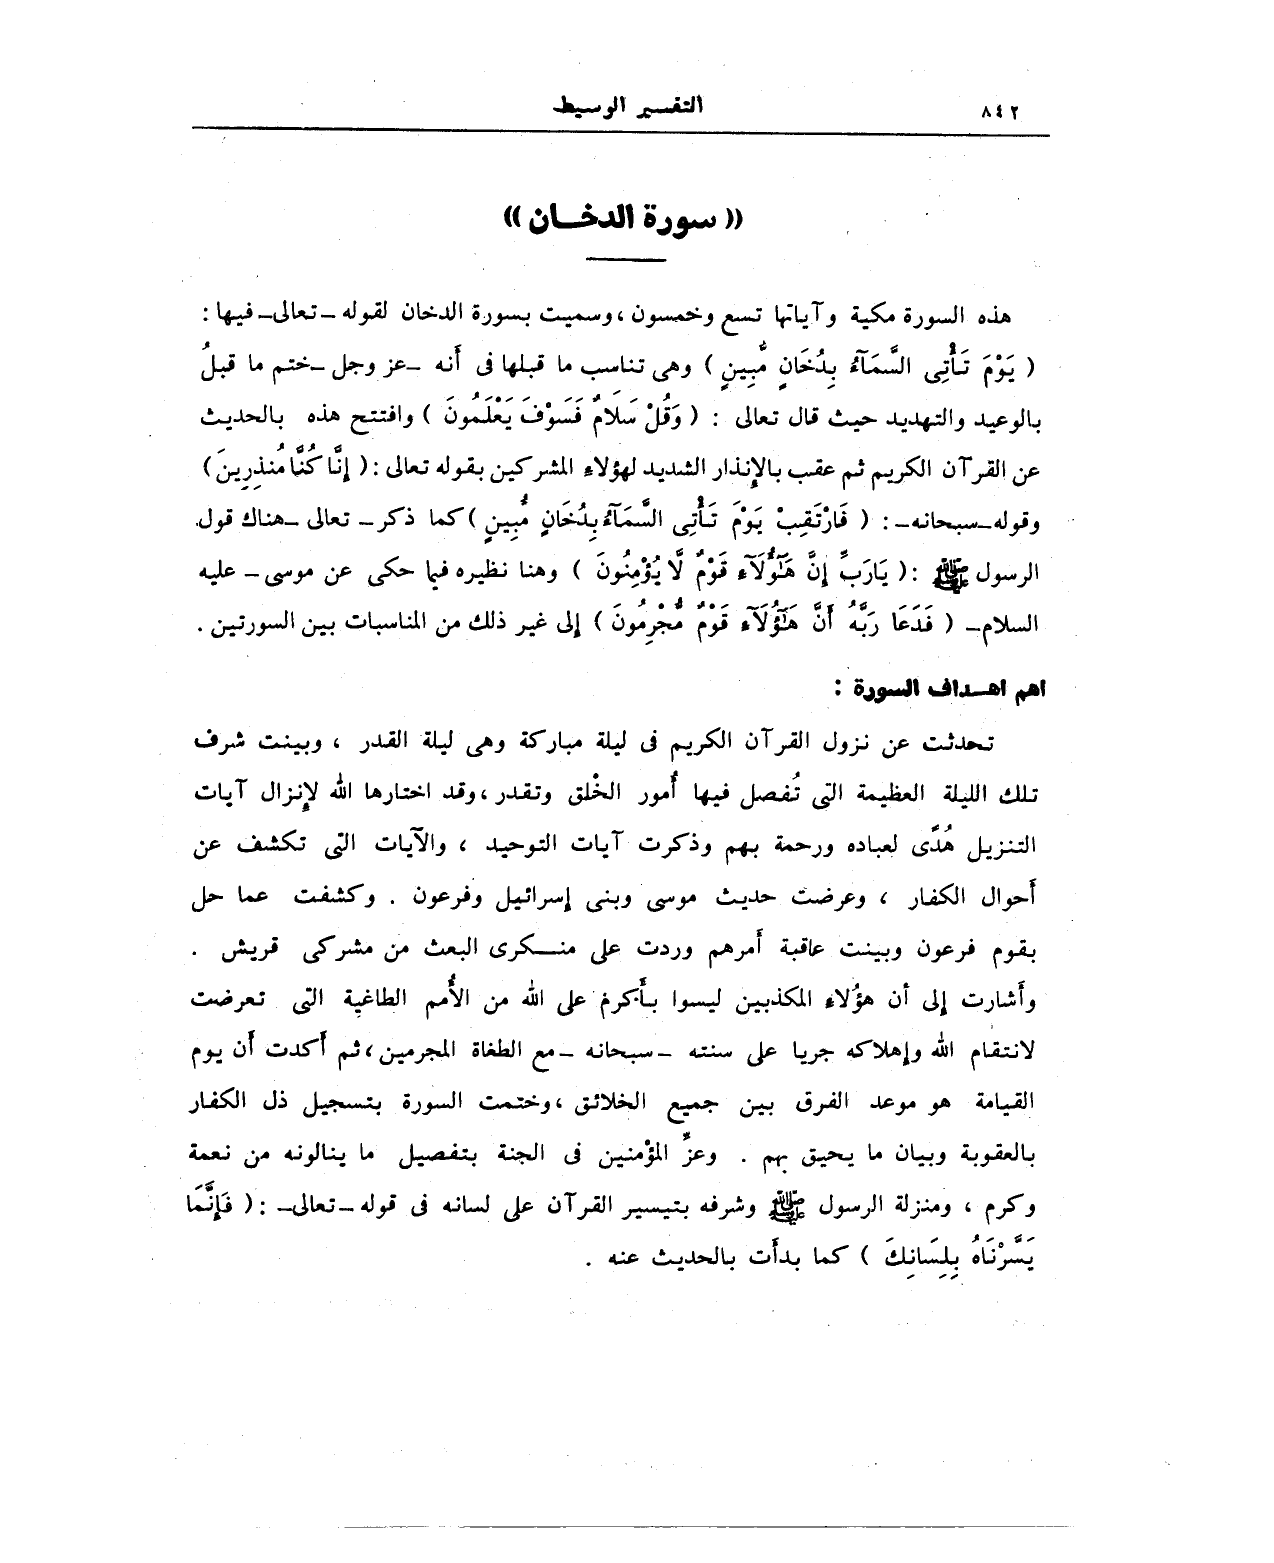 ٨٤٢
التفسير الوسيط
(( سورة الدخـان ))
هذه السورة مكية وآياتها تسع وخمسون ، وسميت بسورة الدخان لقوله ـ تعالى ـ فيها :
( يَوْمَ تَأْتِى السَّمَآءُ بِدُخَانٍ مُّبِينٍ ) وهى تناسب ما قبلها فى أنه ـ عز وجل ـ ختم ما قبلُ
بالوعيد والتهديد حيث قال تعالى : ( وَقُلْ سَلَامٌ فَسَوْفَ يَعْلَمُونَ ) وافتتح هذه بالحديث
عن القرآن الكريم ثم عقب بالإنذار الشديد لهؤلاء المشركين بقوله تعالى : ( إِنَّا كُنَّا مُنذِرِينَ )
وقوله ـ سبحانه ـ : ( فَارْتَقِبْ يَوْمَ تَأْتِى السَّمَآءُ بِدُخَانٍ مُّبِينٍ ) كما ذكر ـ تعالى ـ هناك قول
الرسول ﷺ : ( يَارَبِّ إِنَّ هَٰٓؤُلَآءِ قَوْمٌ لَّا يُؤْمِنُونَ ) وهنا نظيره فيما حكى عن موسى ـ عليه
السلام ـ ( فَدَعَا رَبَّهُ أَنَّ هَٰٓؤُلَآءِ قَوْمٌ مُّجْرِمُونَ ) إلى غير ذلك من المناسبات بين السورتين .
اهم اهـداف السورة :
تحدثت عن نزول القرآن الكريم فى ليلة مباركة وهى ليلة القدر ، وبينت شرف
تلك الليلة العظيمة التى تُفصل فيها أُمور الخْلق وتقدر ، وقد اختارها الله لإنزال آيات
التنزيل هُدًى لعباده ورحمة بهم وذكرت آيات التوحيد ، والآيات التى تكشف عن
أحوال الكفار ، وعرضت حديث موسى وبنى إسرائيل وفرعون . وكشفت عما حل
بقوم فرعون وبينت عاقبة أمرهم وردت على منـكرى البعث من مشركى قريش .
وأشارت إلى أن هؤلاء المكذبين ليسوا بأكرم على الله من الأُمم الطاغية التى تعرضت
لانتقام الله وإهلاكه جريا على سنته ـ سبحانه ـ مع الطغاة المجرمين ، ثم أكدت أن يوم
القيامة هو موعد الفرق بين جميع الخلائق ، وختمت السورة بتسجيل ذل الكفار
بالعقوبة وبيان ما يحيق بهم . وعزِّ المؤمنين فى الجنة بتفصيل ما ينالونه من نعمة
وكرم ، ومنزلة الرسول ﷺ وشرفه بتيسير القرآن على لسانه فى قوله ـ تعالى ـ : ( فَإِنَّمَا
يَسَّرْنَاهُ بِلِسَانِكَ ) كما بدأت بالحديث عنه .